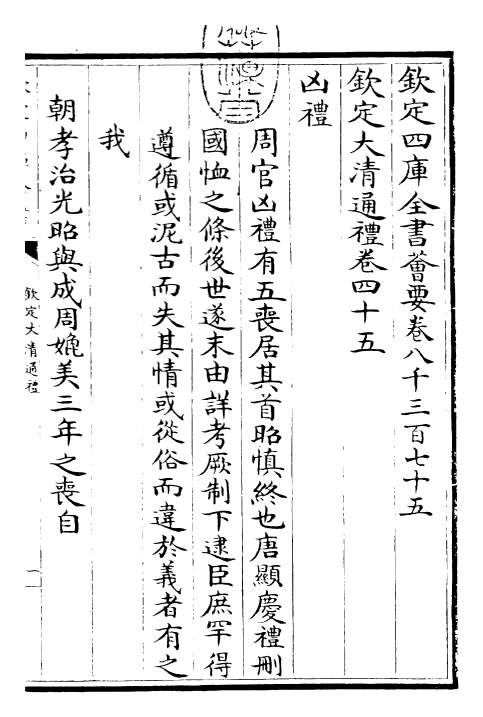 欽定四庫全書薈要卷八千三百七十五
欽定大清通禮卷四十五
凶禮
周官凶禮有五喪居其首昭慎終也唐顯慶禮刪
國恤之條後世遂末由詳考厥制下逮臣庶罕得
遵循或泥古而失其情或從俗而違於義者有之
我
朝孝治光昭與成周媲美三年之喪自
欽定大清通禮
一